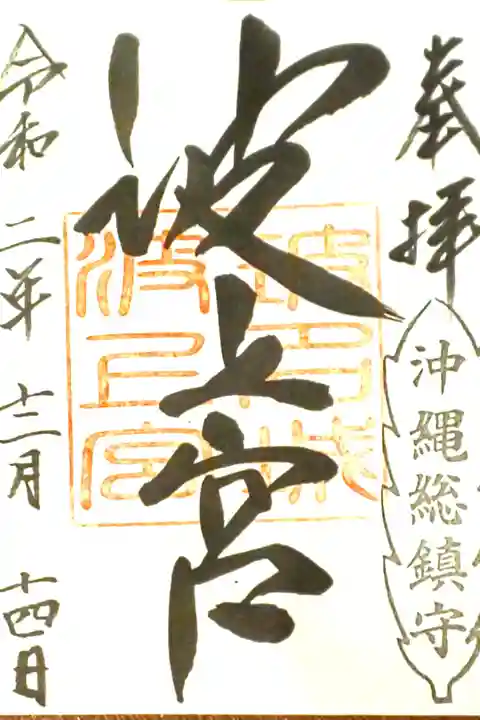 奉拝
沖縄総鎮守
波上宮
令和二年十二月十四日